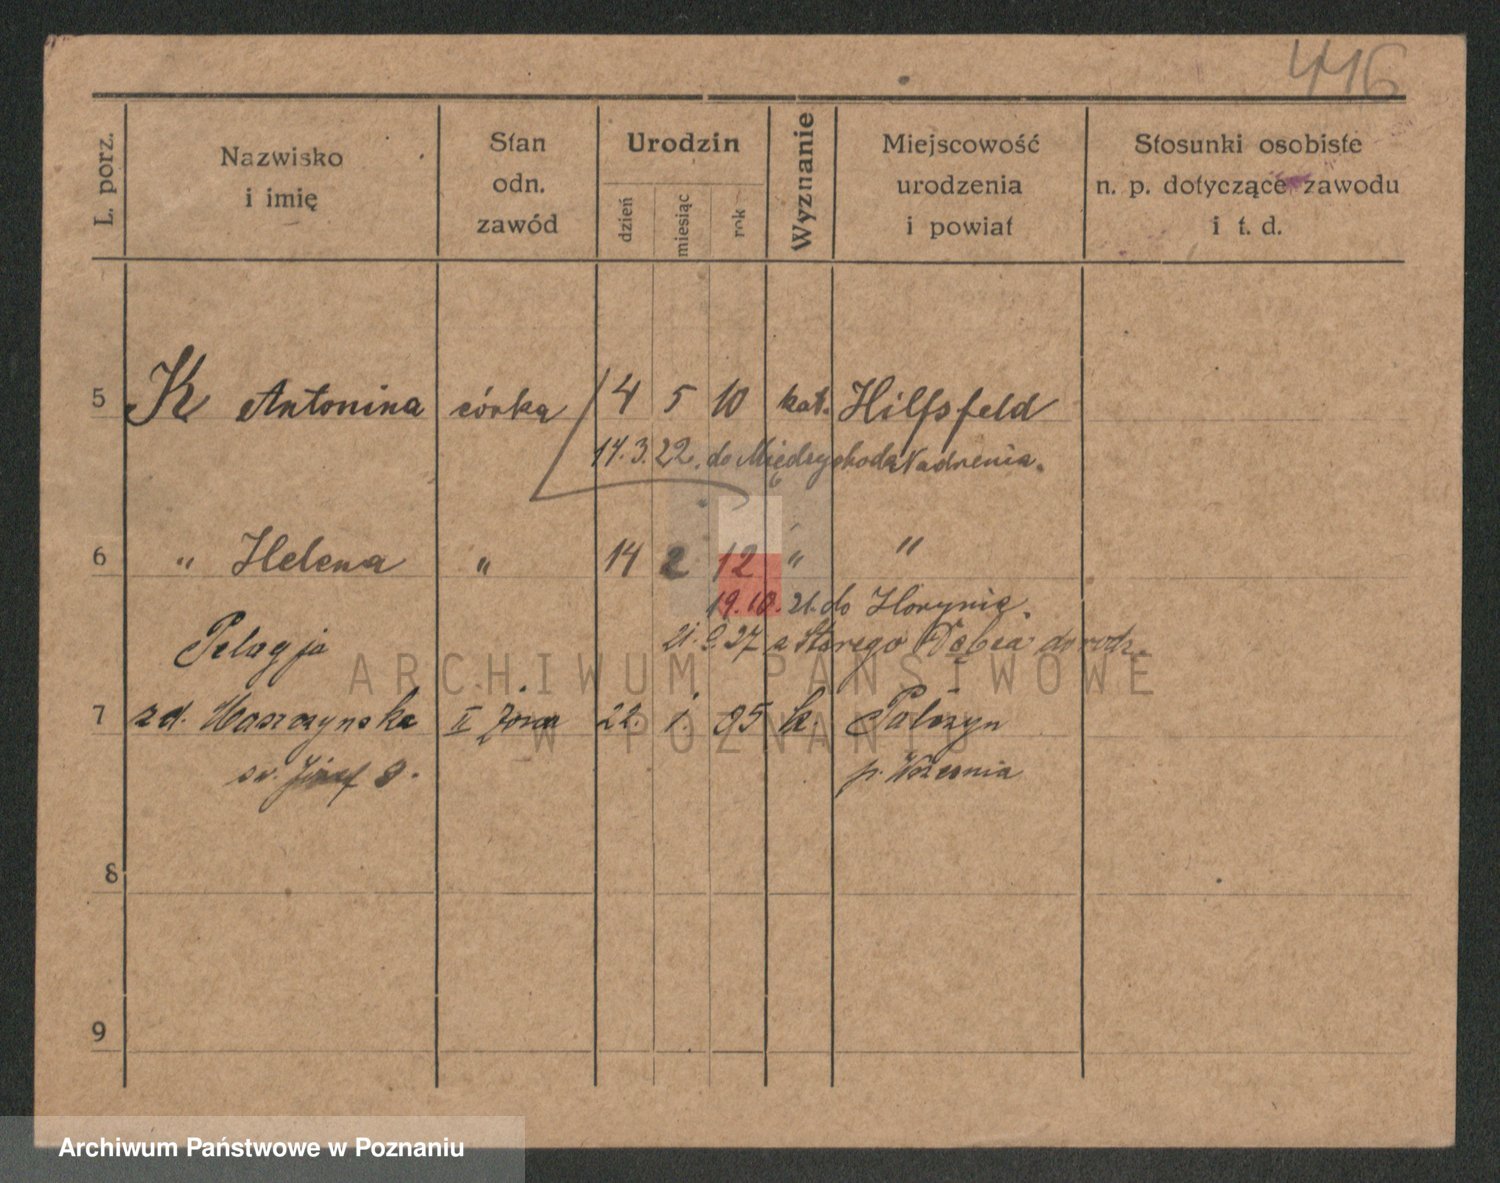 416
L. porz.
Nazwisko
i imię
Stan
odn.
zawód
Urodzin
dzień
miesiąc
rok
Wyznanie
Miejscowość
urodzenia
i powiat
Stosunki osobiste
n. p. dotyczące zawodu
i t. d.
5 K Antonina córka 4 5 10 kat. Hilfsfeld
14.3.22. do Międzychoda
6 " Helena " 14 2 12 " "
19.10.21. do Horynia.
Pelagja 21.9.27 a Starego
7 zd. Waszczynska II żona 22. 1. 95 k.
św. Józef 8. p. Września
8
9
ARCHIWUM PAŃSTWOWE
W POZNANIU
Archiwum Państwowe w Poznaniu